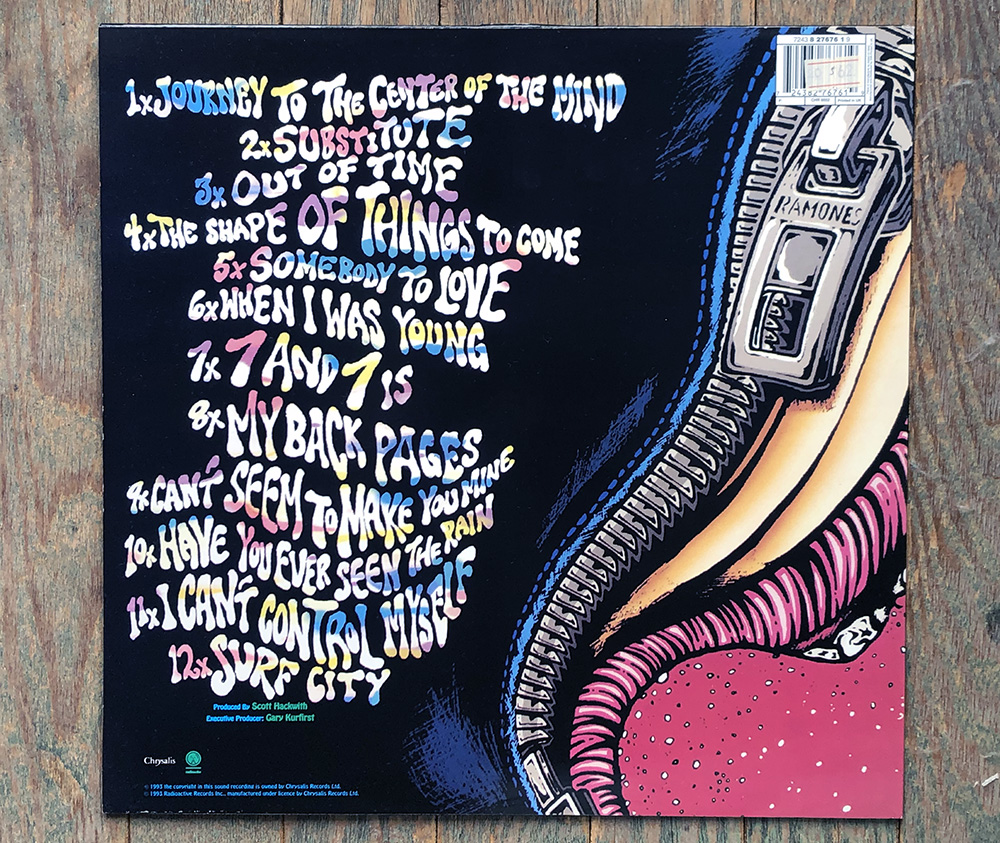 7243 8 27676 1 9
1x JOURNEY TO THE CENTER OF THE MIND
2x SUBSTITUTE
3x OUT OF TIME
4x THE SHAPE OF THINGS TO COME
5x SOMEBODY TO LOVE
6x WHEN I WAS YOUNG
7x 7 AND 7 IS
8x MY BACK PAGES
9x CAN'T SEEM TO MAKE YOU MINE
10x HAVE YOU EVER SEEN THE RAIN
11x I CAN'T CONTROL MYSELF
12x SURF CITY
RAMONES
Produced By Scott Hackwith
Executive Producer: Gary Kurfirst
Chrysalis
© 1993 the copyright in this sound recording is owned by Chrysalis Records Ltd.
© 1993 Radioactive Records Inc., manufactured under licence by Chrysalis Records Ltd.